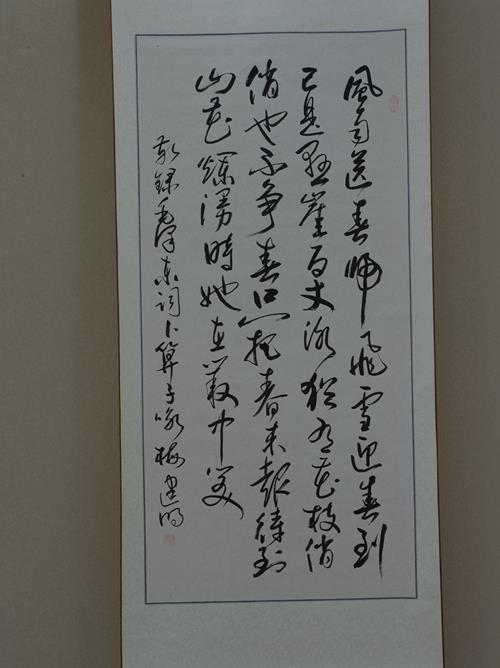 風雨送春歸飛雪迎春到
已是懸崖百丈冰猶有花枝俏
俏也不争春只把春来報待到
山花爛漫時她在叢中笑
敬録毛澤東詞卜算子咏梅建明